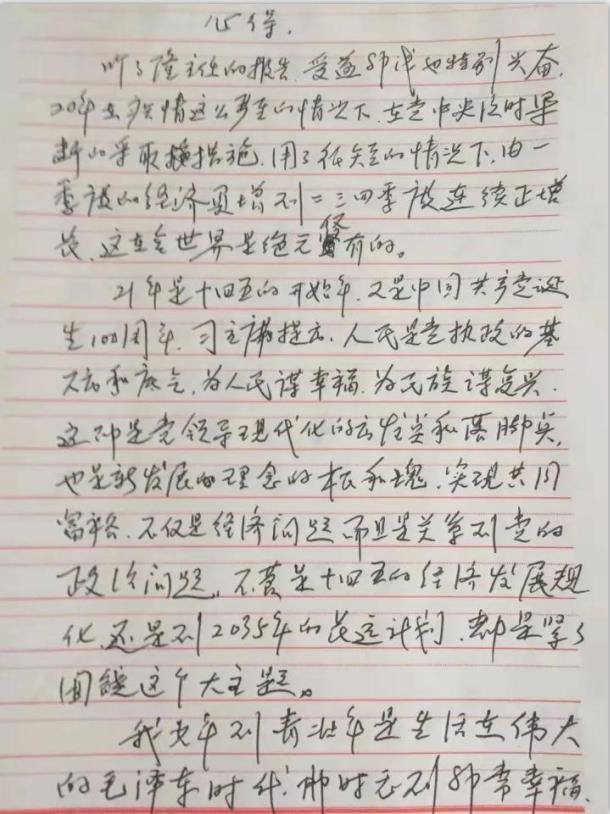 心得.
听了隆主任的报告.受益非浅也特别兴奋.
20年在疫情这么严重的情况下.在党中央及时果
断的采取措施.用了很短的情况下.由一
季度的经济负增到二三四季度连续正增
长.这在全世界是绝无仅有的。
21年是十四五的开始年.又是中国共产党诞
生100周年.习主席提示.人民是党执政的基
石和底气.为人民谋幸福.为民族谋复兴.
这即是党领导现代化的出发点和落脚点.
也是新发展的理念的根和魂.实现共同
富裕.不仅是经济问题而且是关系到党的
政治问题.不管是十四五的经济发展规
化.还是到2035年的长远计划.都是紧紧
围绕这个大主题。
我少年到青壮年是生活在伟大
的毛泽东时代.那时感到非常幸福.